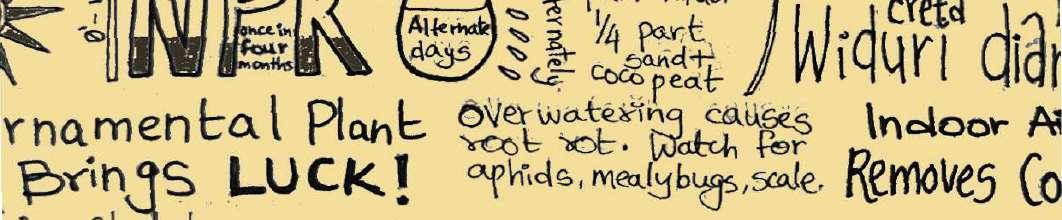 NPK
once in
four
months
Alternate
days
1/4 part
sand+
cocopeat
Widuri
Ornamental Plant
Brings LUCK!
Overwatering causes
root rot. Watch for
aphids, mealybugs, scale.
Indoor
Removes